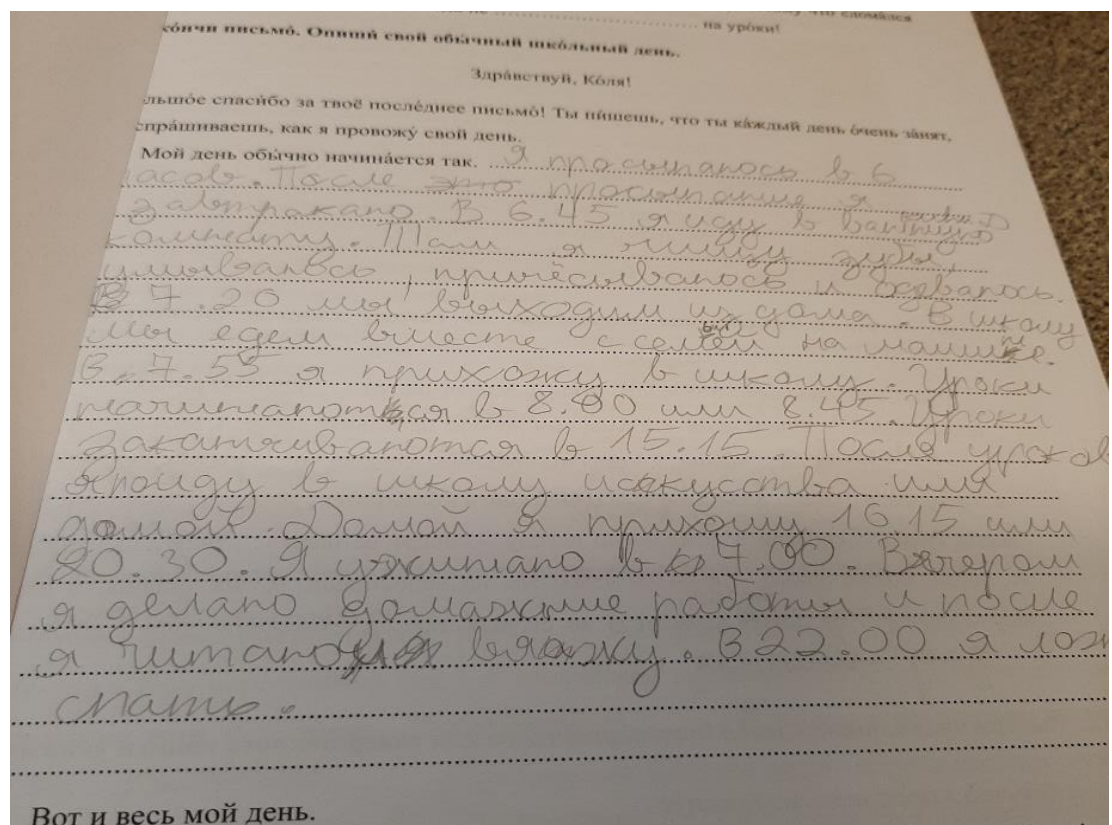 что сломался
на уроки!
кончи письмо́. Опиши́ свой обы́чный шко́льный день.
Здра́вствуй, Ко́ля!
льшо́е спаси́бо за твоё после́днее письмо́! Ты пи́шешь, что ты ка́ждый день о́чень за́нят,
спра́шиваешь, как я провожу́ свой день.
Мой день обы́чно начина́ется так. Я просыпаюсь в 6
часов. После это просыпания я
завтракаю. В 6.45 я иду в ванную
комнату. Там я чищу зубы,
умываюсь, причёсываюсь и одеваюсь.
В 7.20 мы выходим из дома. В школу
мы едем вместе с семьёй на машине.
В 7.55 я прихожу в школу. Уроки
начинаются в 8.00 или 8.45. Уроки
заканчиваются в 15.15. После уроков
я поиду в школу искусства или
домой. Домой я приходиу 16.15 или
20.30. Я ужинаю в 7.00. Вечером
я делаю домажние работы и после
я читаю вяжу. В 22.00 я лож
спать.
Вот и весь мой день.